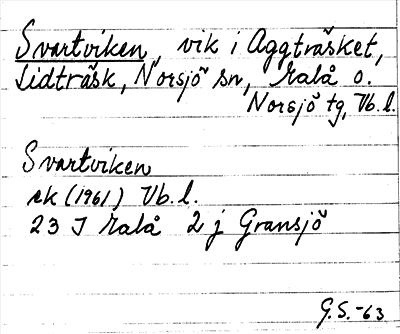 Svartviken, vik i Aggträsket,
Lidträsk, Norsjö sn, Malå o.
Norsjö tg, Vb.l.
Svartviken
ek (1961) Vb.l.
23 J Malå 2 j Gransjö
G.S.-63